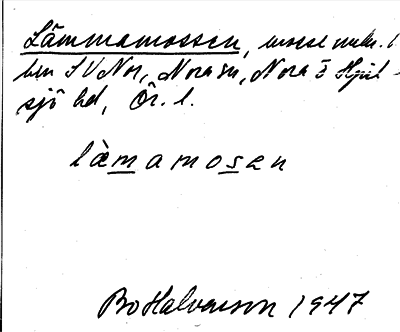 Lämmamossen, mosse
SV Nor, Nora sn, Nora
sjö hd, Ör. l.
làmamosen
Bo Halvarson 1947